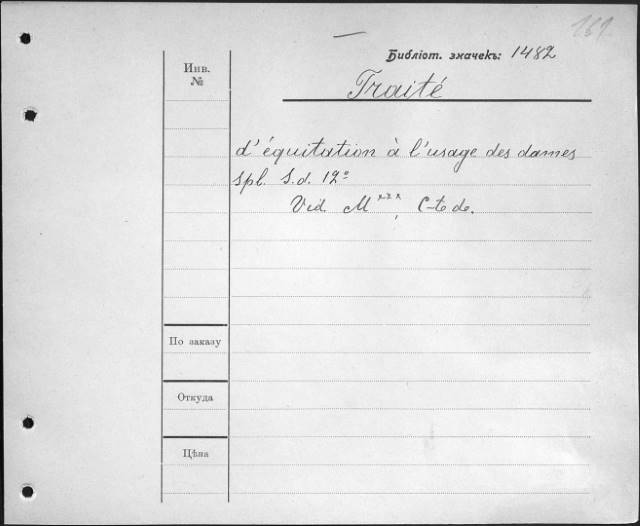 169.
Библіот. значекъ: 1482
Инв.
№
Traité
d'équitation à l'usage des dames
Spl. S.d. 12º
Vid. M xxx, C-te de.
По заказу
Откуда
Цѣна